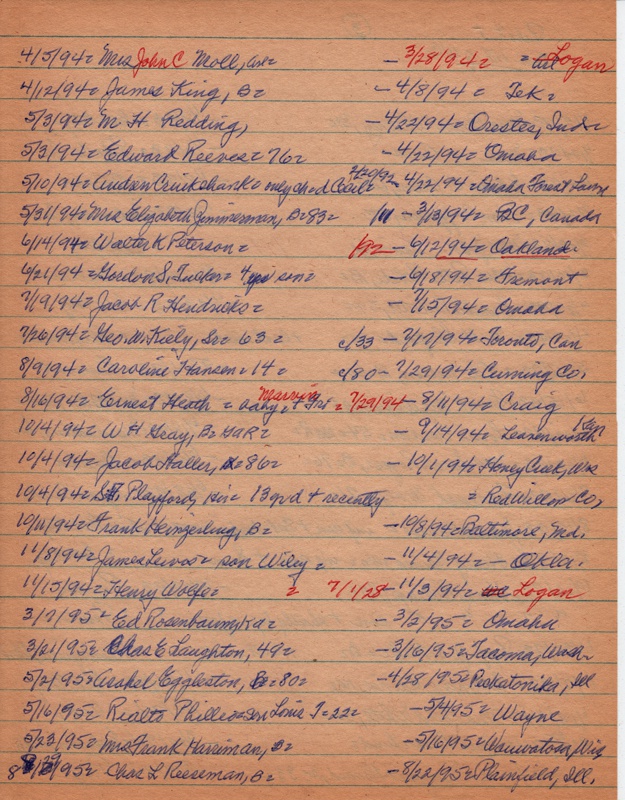 4/5/94 = Mrs John C Moll, are = – 3/28/94 = = Logan
4/12/94 = James King, B = – 4/8/94 = Tek =
5/3/94 = M H Redding, – 4/22/94 = Orestes, Ind =
5/3/94 = Edward Reeves = 76 = – 4/22/94 = Omaha
5/10/94 = Andrew Cruickshank = only chd Cecil = 4/20/92 – 4/22/94 = Omaha Forest Lawn
5/31/94 = Mrs Elizabeth Zimmerman, B = 83 = – 3/13/94 = BC, Canada
6/14/94 = Walter K Peterson = 1/92 – 6/12/94 = Oakland =
6/21/94 = Gordon S. Tucker = 4 yr son = – 6/18/94 = Fremont
7/19/94 = Jacob R Hendricks = – 7/15/94 = Omaha
7/26/94 = Geo. W. Kiely, Sr = 63 = c/33 – 7/17/94 = Toronto, Can
8/9/94 = Caroline Hansen = 14 = c/80 – 7/29/94 = Cuming Co.
8/16/94 = Ernest Heath = baby = = 7/29/94 – 8/11/94 = Craig
10/4/94 = W H Gray, B = GAR = – 9/14/94 = Leavenworth Kan
10/4/94 = Jacob Haller, = 86 = – 10/1/94 = Honey Creek, Wis
10/4/94 = Playford, his = 13 yr d + recently = Red Willow Co,
10/11/94 = Frank Heinzerling, B = – 10/8/94 = Baltimore, Md.
11/8/94 = James Lewis = son Wiley = – 11/4/94 = – Okla.
11/15/94 = Henry Wolfe = = 7/1/28 – 11/3/94 = Logan
3/7/95 = Ed Rosenbaum, = – 3/2/95 = Omaha
3/21/95 = Chas E Laughton, 49 = – 3/16/95 = Tacoma, Wash =
5/2/95 = Asahel Eggleston, B = 80 = – 4/28/95 = Pecatonika, Ill
5/16/95 = Rialto Phillio = son Louis T = 22 = – 5/4/95 = Wayne
5/23/95 = Mrs Frank Harriman, B = – 5/16/95 = Wauwatosa, Wis
8/29/95 = Chas L Reeseman, B = – 8/22/95 = Plainfield, Ill.